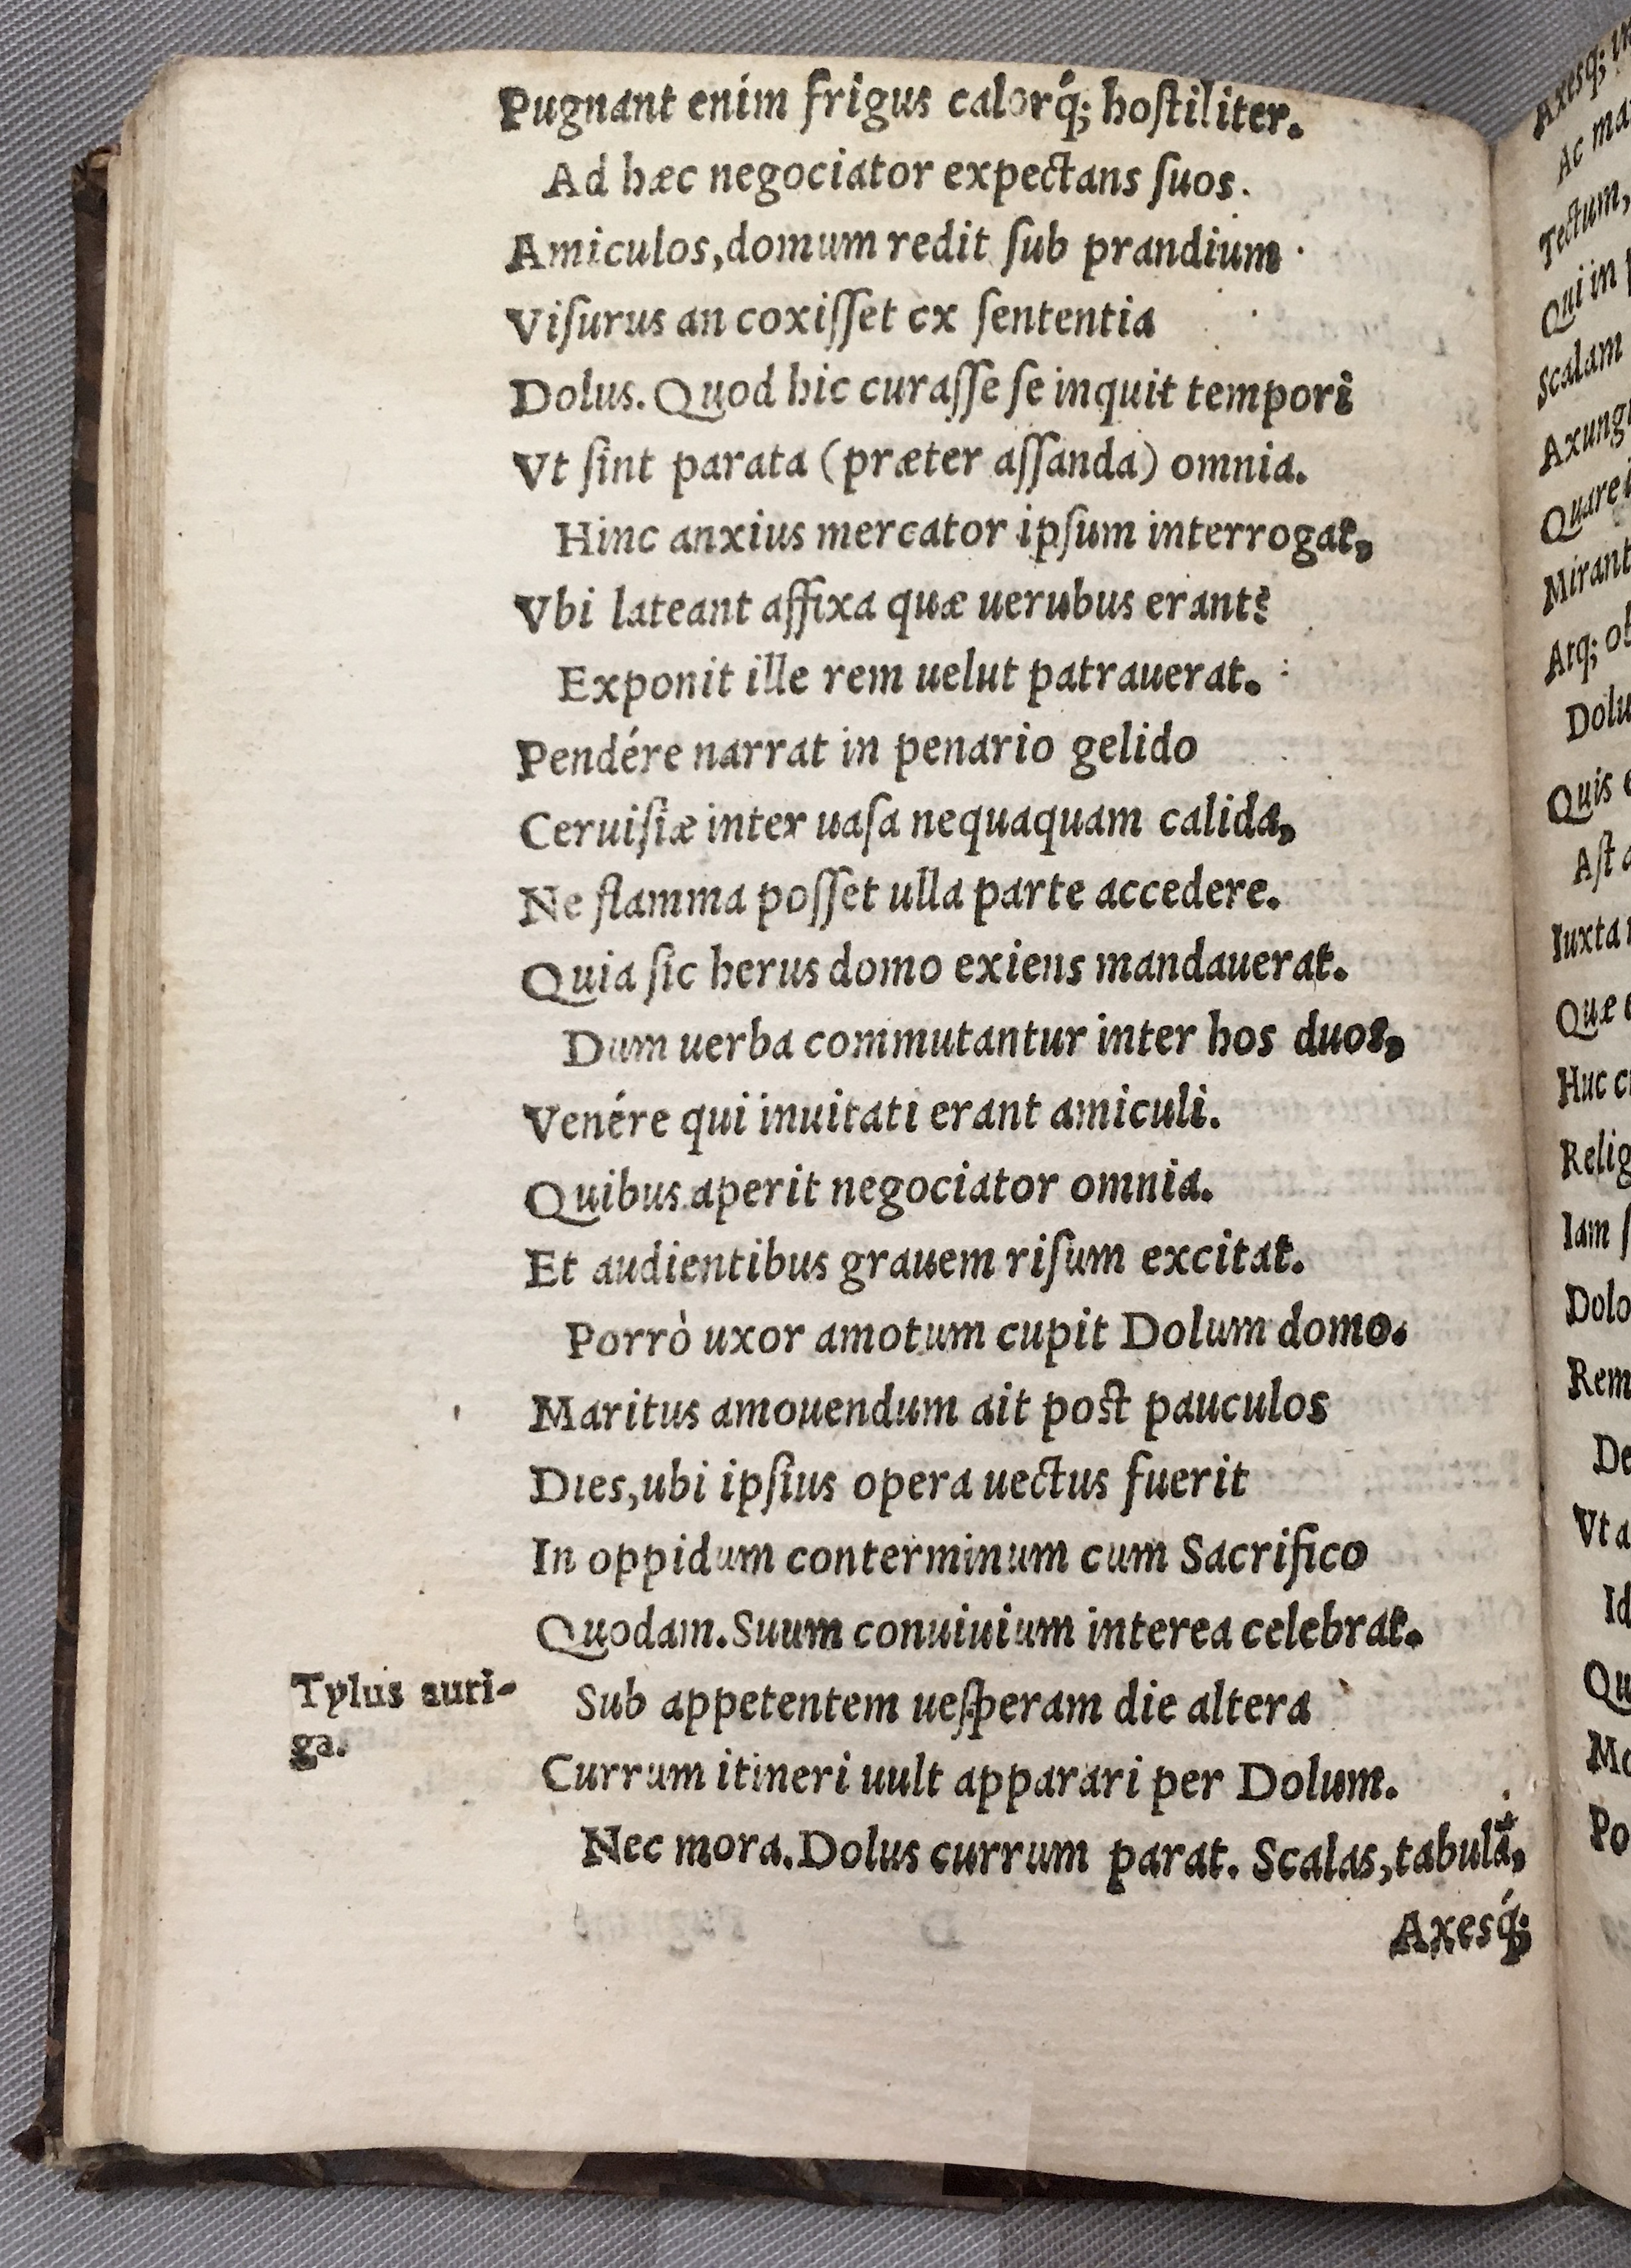 Pugnant enim frigus calorq́; hoſtiliter.
Ad hæc negociator expectans ſuos.
Amiculos, domum redit ſub prandium
Viſurus an coxiſſet ex ſententia
Dolus. Quod hic curaſſe ſe inquit tempori
Vt ſint parata (præter aſſanda) omnia.
Hinc anxius mercator ipſum interrogat,
Vbi lateant affixa quæ uerubus erant?
Exponit ille rem uelut patrauerat.
Pendére narrat in penario gelido
Ceruiſiæ inter uaſa nequaquam calida,
Ne flamma poſſet ulla parte accedere.
Quia ſic herus domo exiens mandauerat.
Dum uerba commutantur inter hos duos,
Venére qui inuitati erant amiculi.
Quibus aperit negociator omnia.
Et audientibus grauem riſum excitat.
Porrò uxor amotum cupit Dolum domo.
Maritus amouendum ait poſt pauculos
Dies, ubi ipſius opera uectus fuerit
In oppidum conterminum cum Sacrifico
Quodam. Suum conuiuium interea celebrat.
Tylus auri-
ga.
Sub appetentem ueſperam die altera
Currum itineri uult apparari per Dolum.
Nec mora. Dolus currum parat. Scalas, tabulã,
Axesq́;
Axesq;
Ac
Tectum,
Qui in
Scalam
Mirant
Atq;
Quis
Aſt
Iuxta
Quæ
Huc
Iam
De
Vt